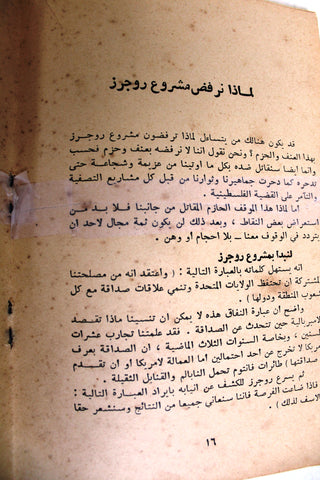 لماذا نرفض مشروع روجرز
قد يكون هنالك من يتساءل لماذا ترفضون مشروع روجرز
بهذا العنف والحزم ؟ ونحن نقول اننا لا نرفضه بعنف وحزم فحسب
وانما ايضا سنقاتل ضده بكل ما اوتينا من عزيمة وشجاعة حتى
تدحره كما دحرت جماهيرنا وثورتنا من قبل كل مشاريع التصفية
والتآمر على القضية الفلسطينية .
اما لماذا هذا الموقف الحازم المقاتل من جانبنا فلا بد من
استعراض بعض النقاط ، وبعد ذلك لن يكون ثمة مجال لاحد ان
يتردد في الوقوف معنا ــ بلا احجام او وهن .
لنبدا بمشروع روجرز
انه يستهل كلماته بالعبارة التالية : ( واعتقد انه من مصلحتنا
المشتركة ان تحتفظ الولايات المتحدة وتنمي علاقات صداقة مع كل
شعوب المنطقة ودولها ) .
واضح ان عبارة النفاق هذه لا يمكن ان تنسينا ماذا تقصد
الامبريالية حين تتحدث عن الصداقة . فقد علمتنا تجارب عشرات
السنين ، وبخاصة السنوات الثلاث الماضية ، ان الصداقة بعرف
امريكا لا تخرج عن احد احتمالين اما العمالة لامريكا او ان تقدم
( صداقتها ) طائرات فانتوم تحمل النابالم والقنابل الثقيلة .
ثم يسرع روجرز للكشف عن انيابه بايراد العبارة التالية :
( فاذا ضاعت الفرصة فاننا سنعاني جميعا من النتائج وسنشعر حقا
بالاسف لذلك ) .
١٦